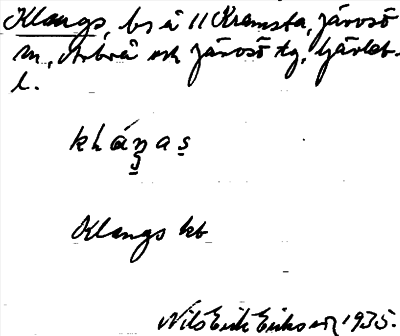 Klangs, bs å 11 Kramsta, Järvsö
sn, Arbrå och Järvsö tg, Gävleb.
l.
Klangs kb
Nils Erik Eriksson 1935.